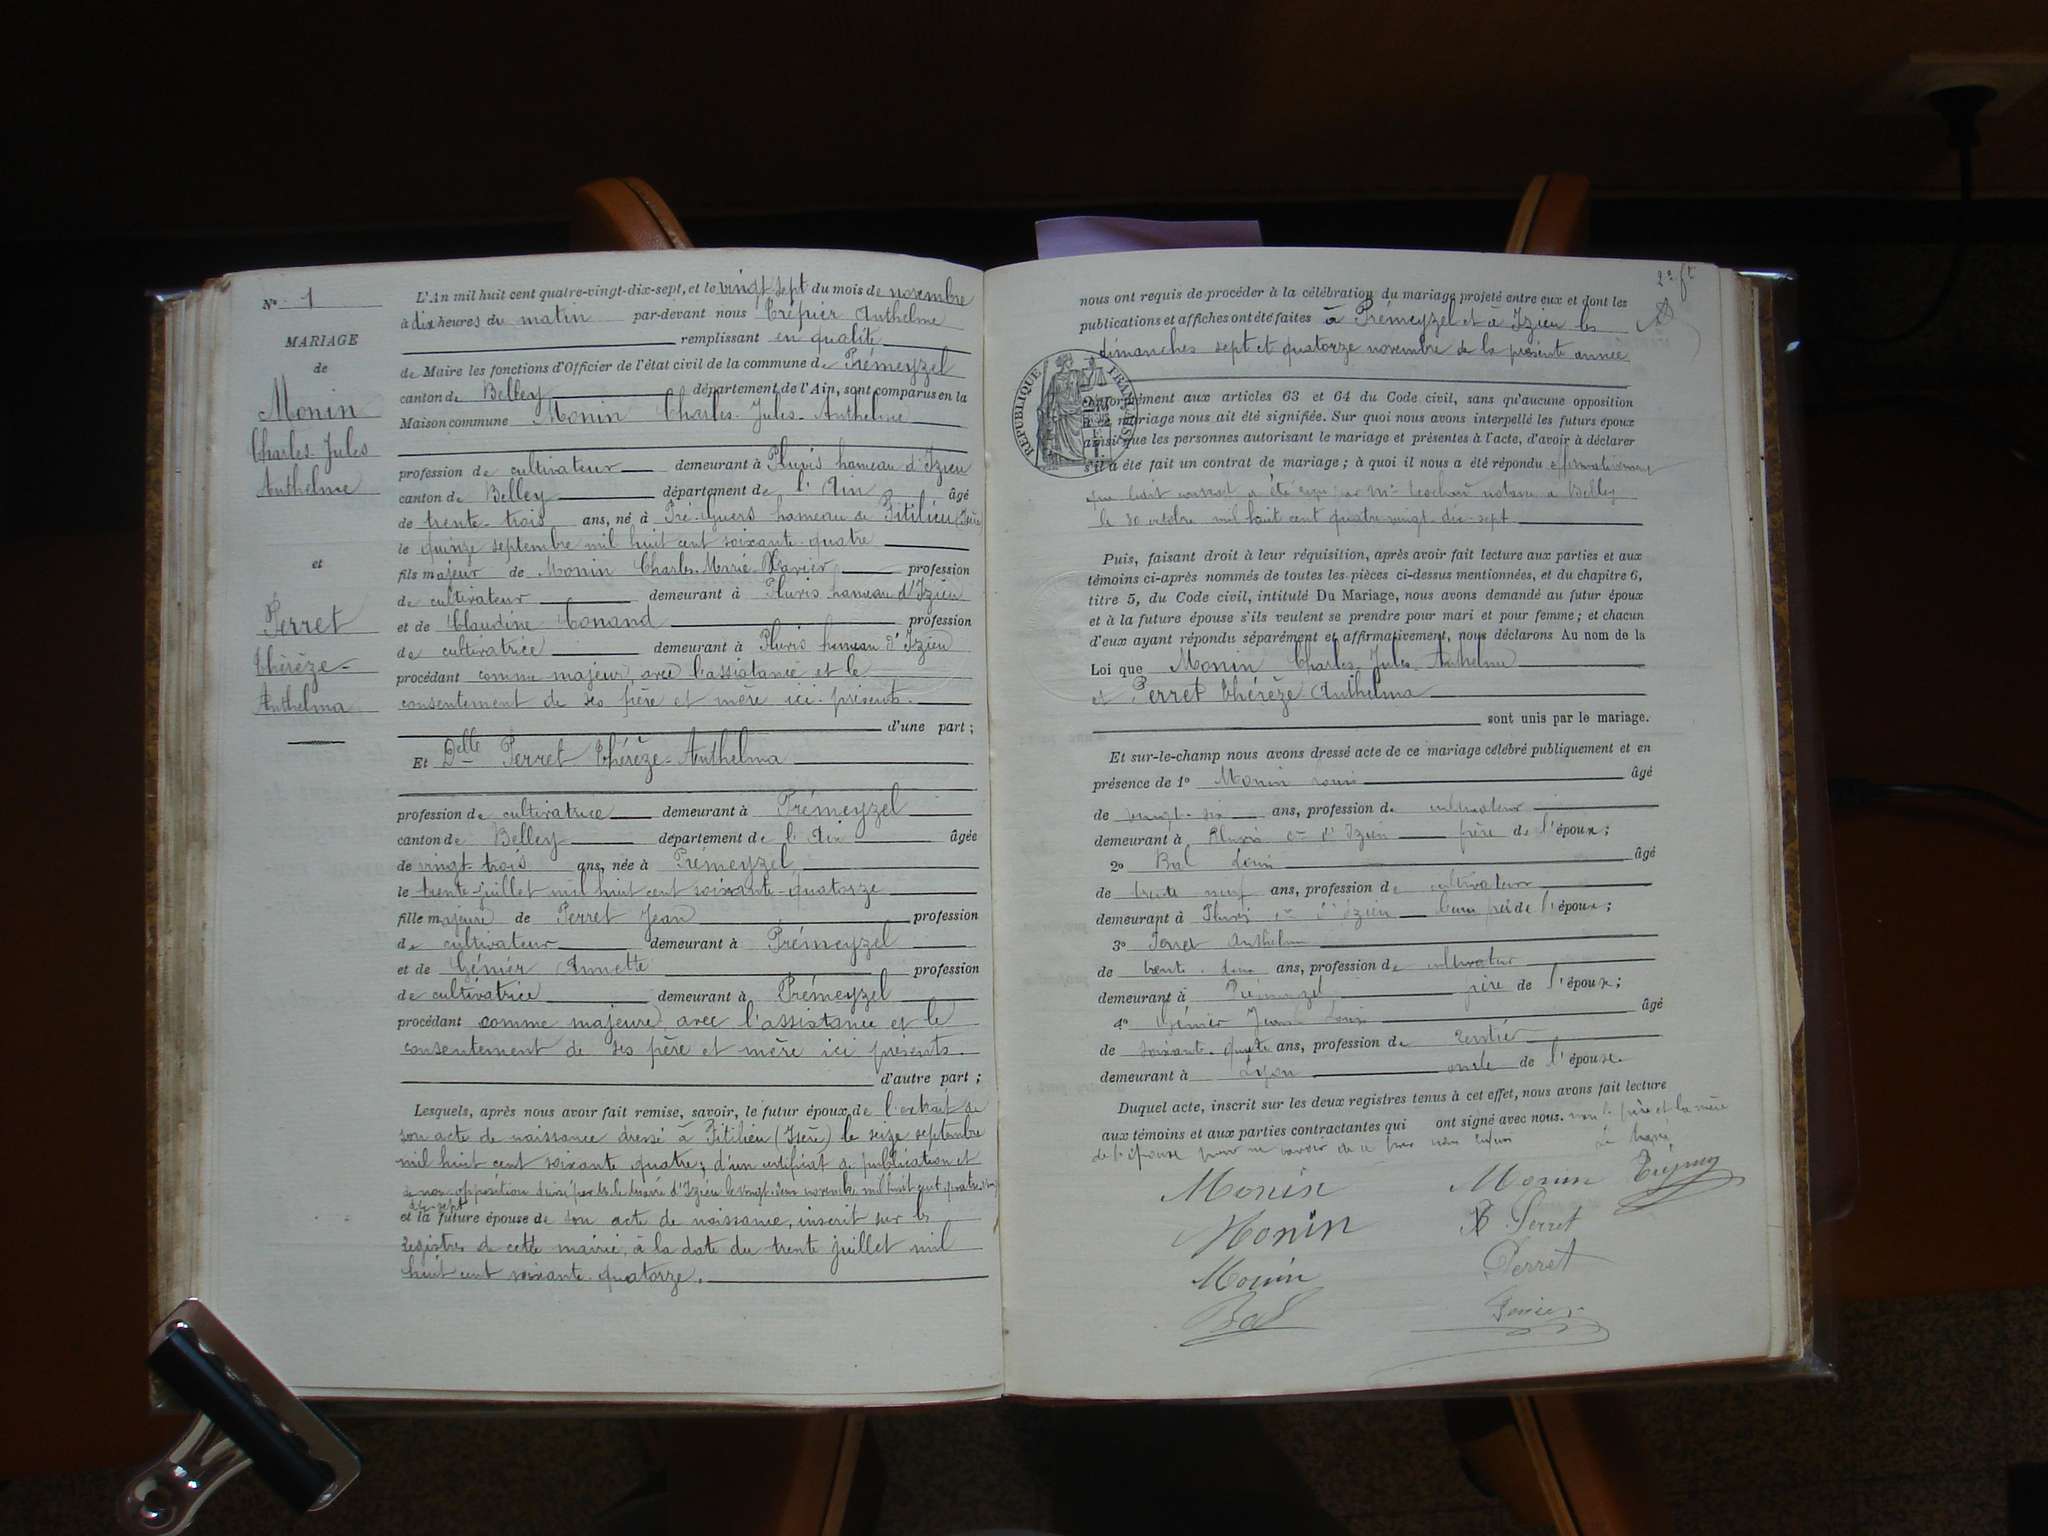 N° 1
MARIAGE
de
Monin
Charles Jules
Anthelme
et
Perret
Thérèze-
Anthelma
L'An mil huit cent quatre-vingt-dix-sept, et le vingt sept du mois de novembre
à dix heures du matin par-devant nous Trépier Anthelme
remplissant en qualité
de Maire les fonctions d'Officier de l'état civil de la commune de Prémeyzel
canton de Belley département de l'Ain, sont comparus en la
Maison commune Monin Charles-Jules-Anthelme
profession de cultivateur demeurant à Pluvis hameau d'Izieu
canton de Belley département de l'Ain âgé
de trente-trois ans, né à hameau de Fitilieu (Isère)
le quinze septembre mil huit cent soixante-quatre
fils majeur de Monin Charles-Marie-Xavier profession
de cultivateur demeurant à Pluvis hameau d'Izieu
et de Claudine Conand profession
de cultivatrice demeurant à Pluvis hameau d'Izieu
procédant comme majeur, avec l'assistance et le
consentement de ses père et mère ici présents.
d'une part;
Et Delle Perret Thérèze-Anthelma
profession de cultivatrice demeurant à Prémeyzel
canton de Belley département de l'Ain âgée
de vingt-trois ans, née à Prémeyzel
le trente juillet mil huit cent soixante-quatorze
fille majeure de Perret Jean profession
de cultivateur demeurant à Prémeyzel
et de Génier Annette profession
de cultivatrice demeurant à Prémeyzel
procédant comme majeure, avec l'assistance et le
consentement de ses père et mère ici présents.
d'autre part;
Lesquels, après nous avoir fait remise, savoir, le futur époux de l'extrait de
son acte de naissance dressé à Fitilieu (Isère) le seize septembre
mil huit cent soixante quatre; d'un certificat de publication et
de non opposition par Mr le Maire d'Izieu le vingt-deux novembre mil huit cent quatre-vingt
dix-sept
et la future épouse de son acte de naissance, inscrit sur les
registres de cette mairie, à la date du trente juillet mil
huit cent soixante quatorze.
nous ont requis de procéder à la célébration du mariage projeté entre eux et dont les
publications et affiches ont été faites à Prémeyzel et à Izieu les
dimanches sept et quatorze novembre de la présente année
RÉPUBLIQUE FRANÇAISE
conformément aux articles 63 et 64 du Code civil, sans qu'aucune opposition
à ce mariage nous ait été signifiée. Sur quoi nous avons interpellé les futurs époux
ainsi que les personnes autorisant le mariage et présentes à l'acte, d'avoir à déclarer
s'il a été fait un contrat de mariage; à quoi il nous a été répondu affirmativement
que contrat a été reçu par Mr notaire à Belley
le 30 octobre mil huit cent quatre vingt-dix-sept
Puis, faisant droit à leur réquisition, après avoir fait lecture aux parties et aux
témoins ci-après nommés de toutes les pièces ci-dessus mentionnées, et du chapitre 6,
titre 5, du Code civil, intitulé Du Mariage, nous avons demandé au futur époux
et à la future épouse s'ils veulent se prendre pour mari et pour femme; et chacun
d'eux ayant répondu séparément et affirmativement, nous déclarons Au nom de la
Loi que Monin Charles-Jules-Anthelme
et Perret Thérèze-Anthelma
sont unis par le mariage.
Et sur-le-champ nous avons dressé acte de ce mariage célébré publiquement et en
présence de 1° Monin Louis âgé
de vingt-six ans, profession de cultivateur
demeurant à Pluvis cne d'Izieu frère de l'époux;
2° Bal Louis âgé
de trente neuf ans, profession de cultivateur
demeurant à Pluvis cne d'Izieu beau frère de l'époux;
3° Perret Anthelme
de trente-deux ans, profession de cultivateur
demeurant à Prémeyzel frère de l'épouse;
4° Génier Jean Louis âgé
de soixante-quatre ans, profession de rentier
demeurant à Lyon oncle de l'épouse.
Duquel acte, inscrit sur les deux registres tenus à cet effet, nous avons fait lecture
aux témoins et aux parties contractantes qui ont signé avec nous. non le père et la mère
de l'épouse pour ne savoir de ce faire
Le Maire
Monin Monin Trépier
Monin Perret
Monin Perret
Bal Génier